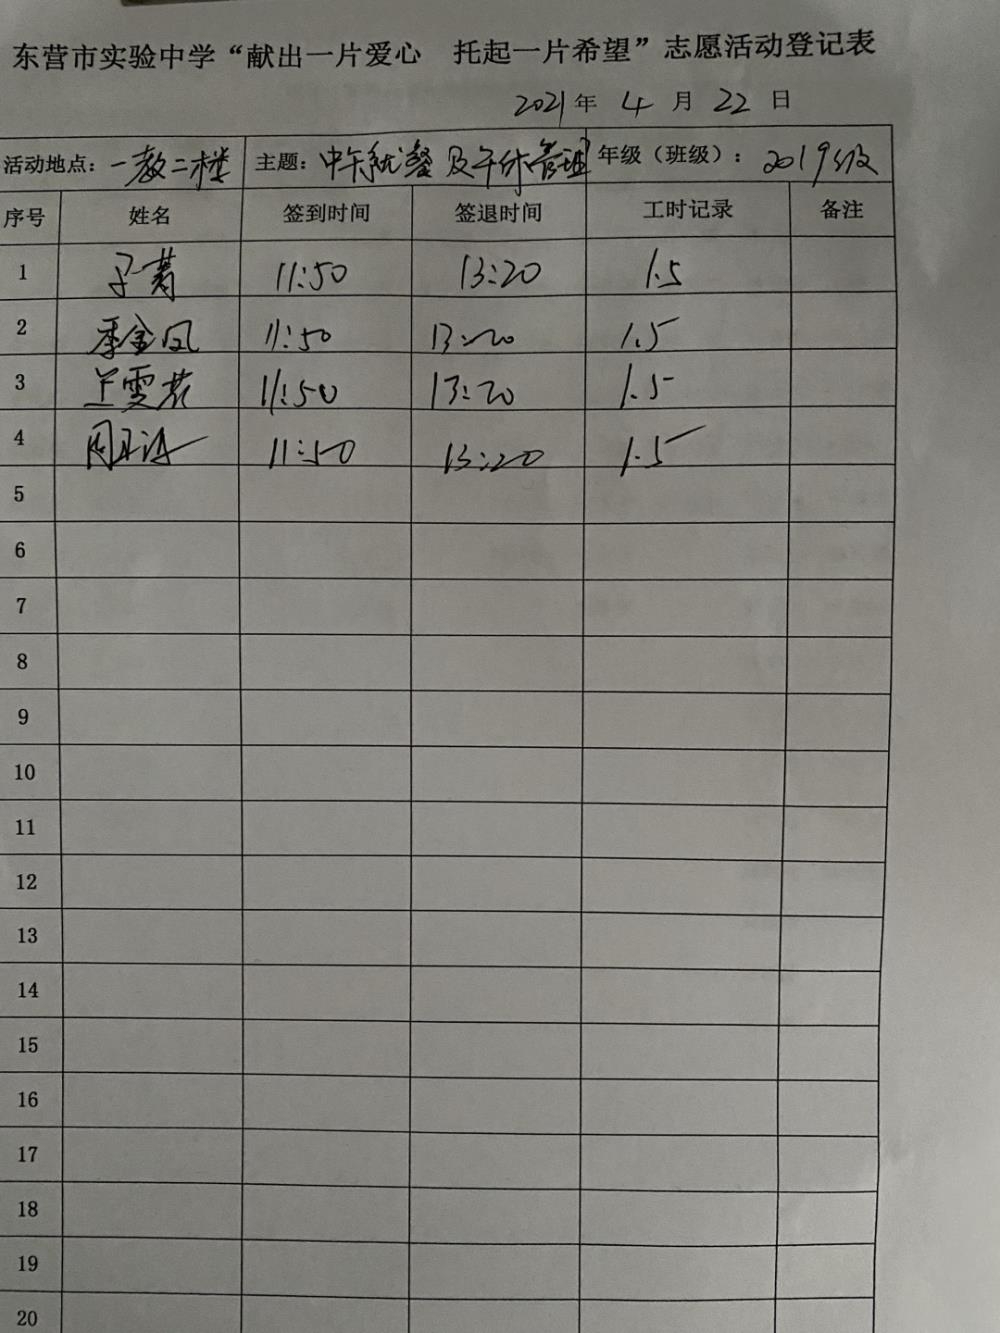 东营市实验中学“献出一片爱心 托起一片希望”志愿活动登记表
2021年 4 月 22 日
活动地点：一教二楼 主题：中午就餐及午休管理 年级（班级）：2019级
序号 姓名 签到时间 签退时间 工时记录 备注
1 11:50 13:20 1.5
2 季金凤 11:50 13:20 1.5
3 兰雯茗 11:50 13:20 1.5
4 11:50 13:20 1.5
5
6
7
8
9
10
11
12
13
14
15
16
17
18
19
20